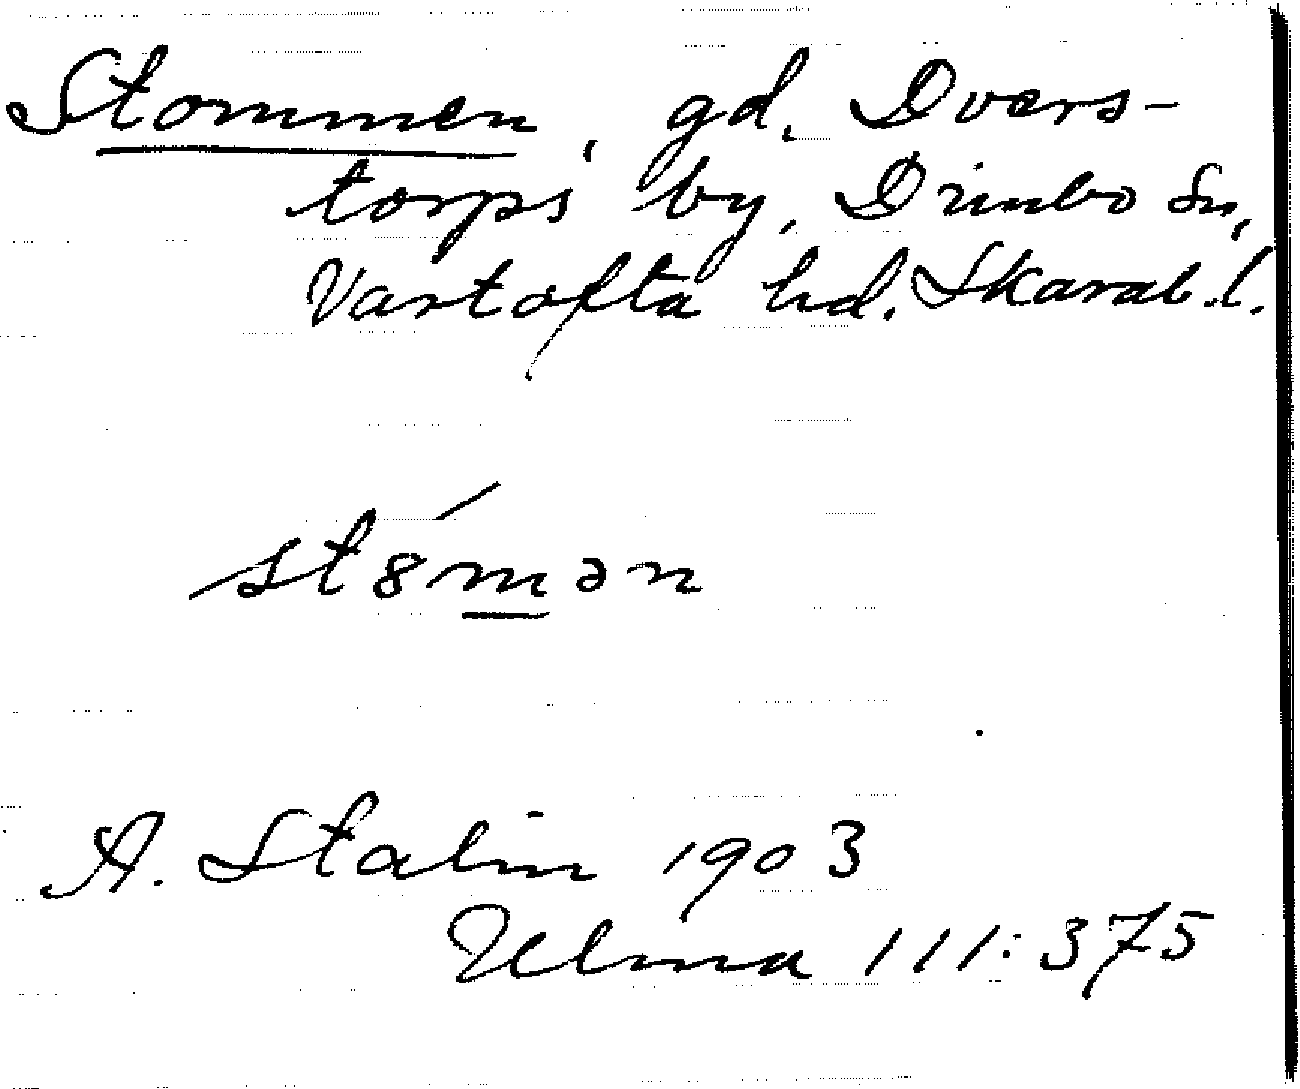 Stommen, gd, Dvers-
torps by, Dimbo sn,
Vartofta hd. Skarab. l.
st8́mən
A. Stalin 1903
Ulma 111:375